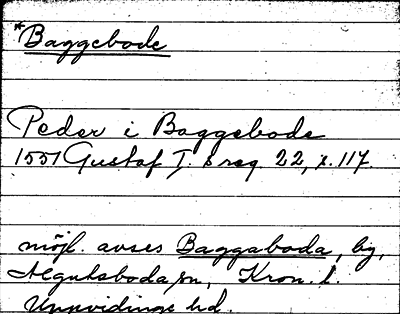 *Baggebode
Peder i Baggebode
1551 Gustaf I. s reg 22, s. 117.
möjl. avses Baggaboda, by,
Älghultsboda sn, Kron. l.
Uppvidinge hd.